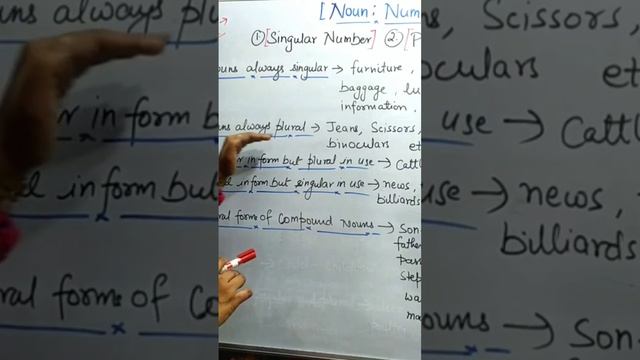 [Noun: Num
① [Singular Number] ② [P
ouns always singular → furniture,
baggage, lu
information.
uns always plural → Jeans, Scissors,
binoculars et
r in form but plural in use → Catt
l in form but singular in use → news,
billiards
ral form of Compound Nouns → Son
father
pass
step
wa
ma